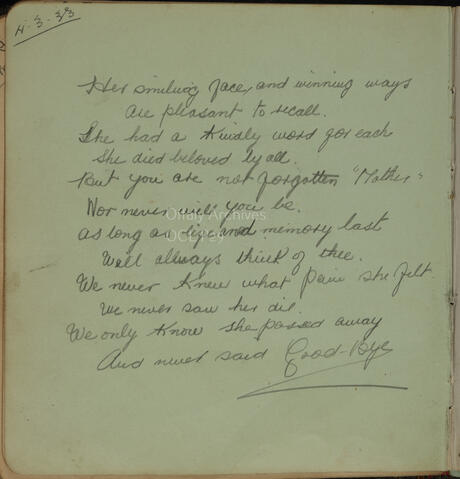 4-3-33
Her smiling face, and winning ways
are pleasant to recall.
She had a kindly word for each
She died beloved by all.
But you are not forgotten "Mother"
Nor never will you be.
as long as life and memory last
Well always think of thee.
We never knew what pain she felt
we never saw her die.
We only know she passed away
And never said Good-Bye
Offaly Archives